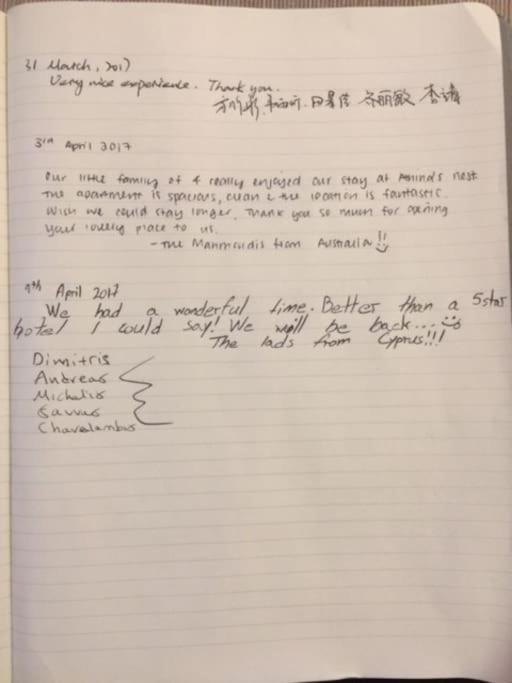 31 March, 2017
Very nice experience. Thank you.
李
3rd April 2017
Our little family of 4 really enjoyed our stay at Aminda's nest.
The apartment is spacious, clean & the location is fantastic.
Wish we could stay longer. Thank you so much for opening
your lovely place to us.
- The Mahmoudis from Australia !!
9th April 2017
We had a wonderful time. Better than a 5 star
hotel I could say! We will be back...
The lads from Cyprus!!!
Dimitris
Andreas
Michalis
Savvas
Charalambos